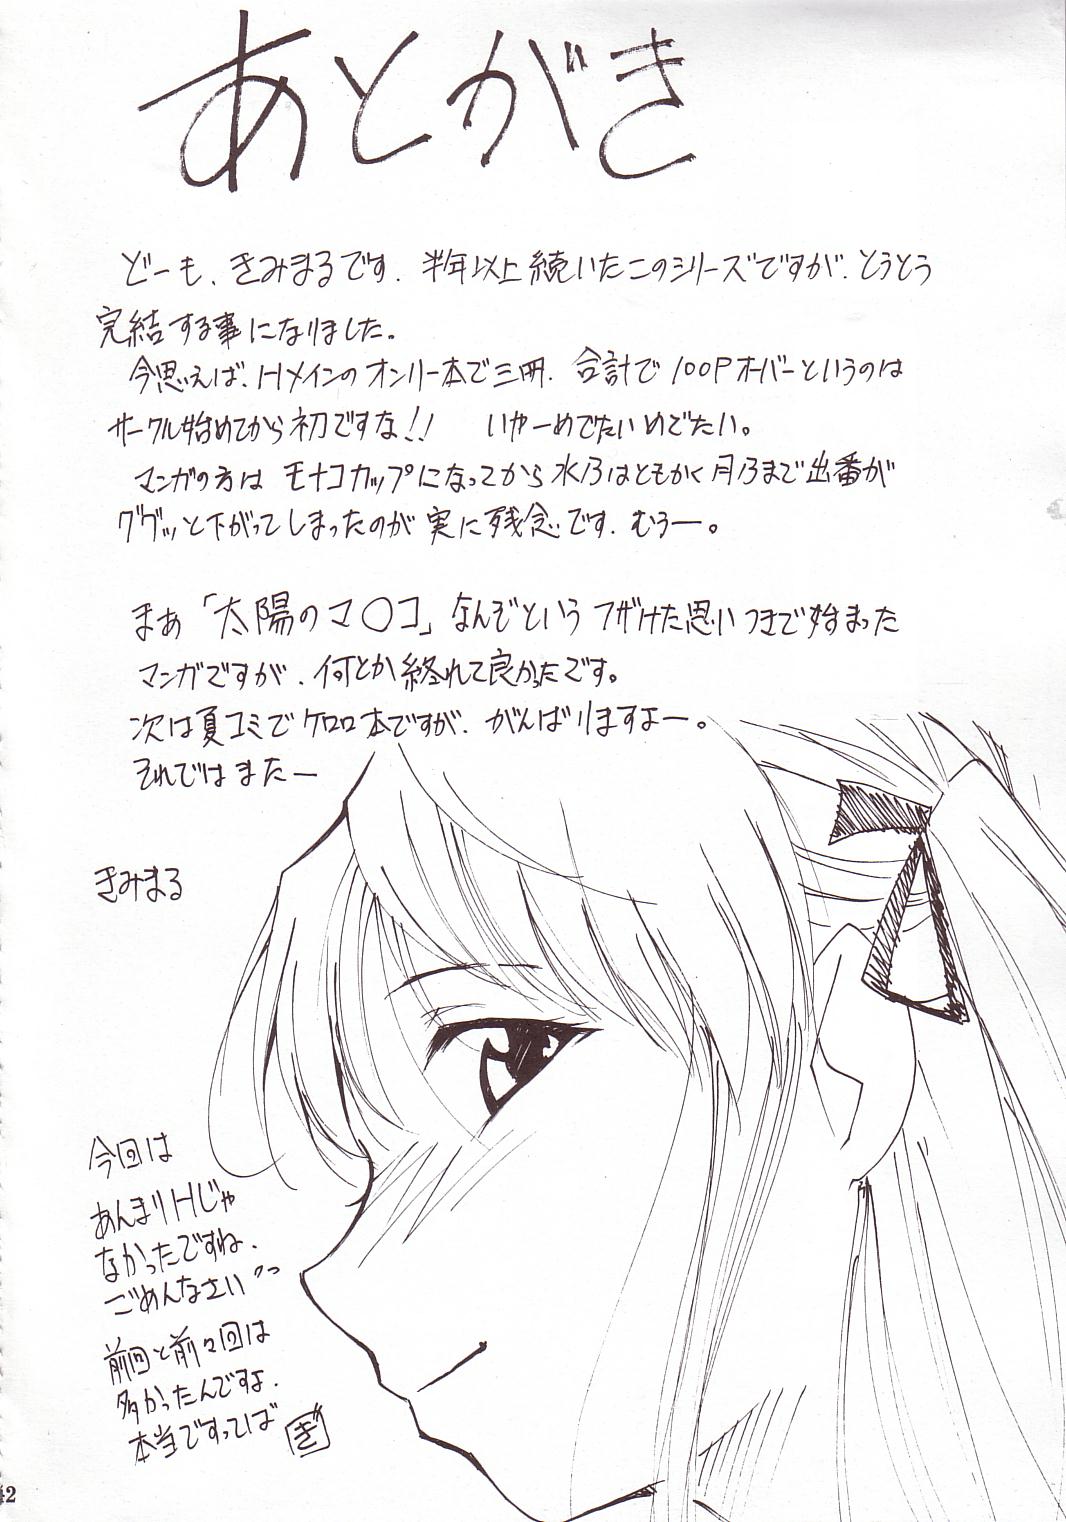 あとがき
どーも、きみまるです。半年以上続いたこのシリーズですが、とうとう
完結する事になりました。
今思えば、Hメインのオンリー本で三冊、合計で100Pオーバーというのは
サークル始めてから初ですな!! いやーめでたいめでたい。
マンガの方はモナコカップになってから水乃はともかく月乃まで出番が
ググッと下がってしまったのが実に残念です。むうー。
まぁ「太陽のマ○コ」なんぞというフザけた思いつきで始まった
マンガですが、何とか終れて良かったです。
次は夏コミでケロロ本ですが、がんばりますよー。
それではまたー
きみまる
今回は
あんまりHじゃ
なかったですね、
ごめんなさい
前回と前々回は
多かったんですよ、
本当ですってば
き
42